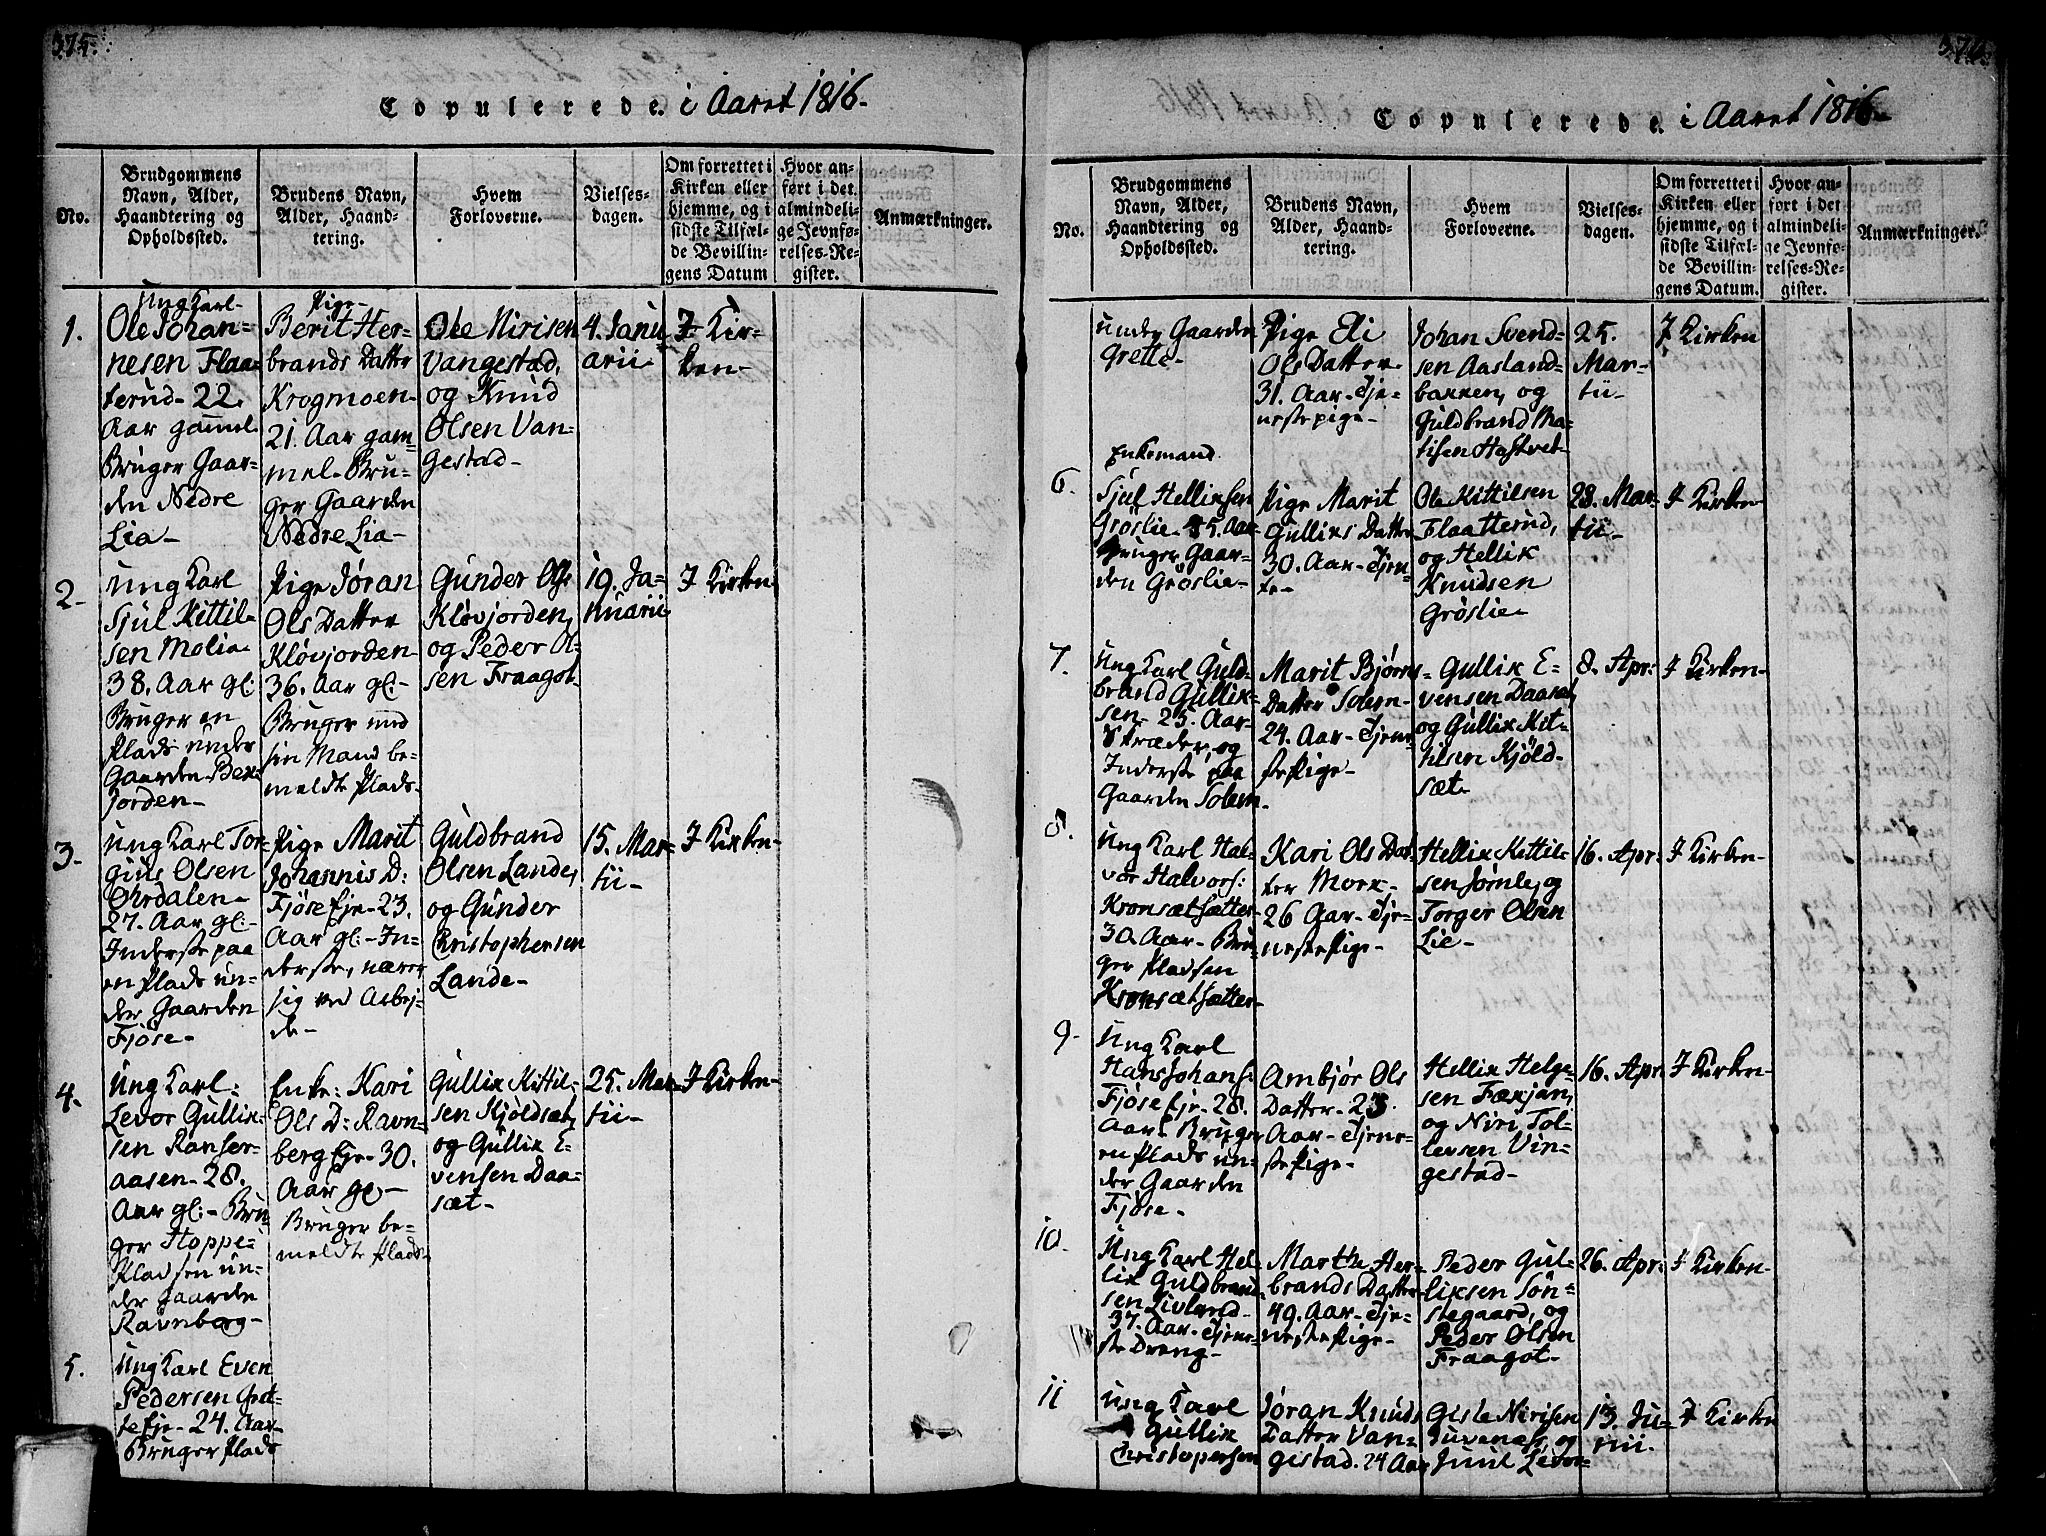 375.
Copulerede. i Aaret 1816.
No.
Brudgommens
Navn, Alder,
Haandtering og
Opholdssted.
Brudens Navn,
Alder, Haand-
tering.
Hvem
Forloverne.
Vielses-
dagen.
Om forrettet i
Kirken eller
hjemme, og i
sidste Tilfæl-
de Bevillin-
gens Datum
Hvor an-
ført i det
almindeli-
ge Jevnfø-
relses-Re-
gister.
Anmærkninger.
1.
Ung Karl-
Ole Johan-
nesen Flaa-
terud- 22.
Aar gammel-
Bruger Gaar-
den Nedre
Lia-
Pige-
Berit Her-
brands Datter
Krogmoen-
21. Aar gam-
mel- Bru-
ger Gaarden
Nedre Lia-
Ole Nirisen
Vangestad,
og Knud
Olsen Van-
gestad-
4. Janu-
arii-
I Kir-
ken-
2.
Ung Karl
Sjul Kittil-
sen Molia-
38. Aar gl:
Bruger en
Plads under
Gaarden Bek-
jorden-
Pige Jøran
Ols Datter
Kløvjorden-
36. Aar gl:-
Bruger med
sin Mand be-
meldte Plads-
Gunder Ols:
Kløvjorden,
og Peder Ol-
sen Fraagot-
19. Ja-
nuarii-
I Kirken
3.
Ung Karl Tor-
gius Olsen
Ørdalen-
27. Aar gl:-
Inderste paa
en Plads un-
der Gaarden
Fjøse-
Pige Marit
Johannis D:
Fjøse Eje- 23.
Aar gl:- In-
derste, nærer
sig ved Arbej-
de-
Guldbrand
Olsen Lande,
og Gunder
Christophersen
Lande-
15. Mar-
tii-
I Kirken-
4.
Ung Karl:
Levor Gullik-
sen Ranser-
aasen- 28.
Aar gl:- Bru-
ger Hoppe-
Pladsen un-
der Gaarden
Ravnberg-
Enke: Kari
Ols D: Ravn-
berg Eje- 30.
Aar gl-
Bruger be-
meldte Plads-
Gullik Kittil-
sen Kjøldsæt,
og Gullik E-
vensen Daa-
sæt-
25. Mar-
tii-
I Kirken-
5.
Ung Karl Even
Pedersen Gret-
te Eje- 24. Aar-
Bruger Plads
376.
Copulerede. i Aaret 1816.
No.
Brudgommens
Navn, Alder,
Haandtering og
Opholdssted.
Brudens Navn,
Alder, Haand-
tering.
Hvem
Forloverne.
Vielses-
dagen.
Om forrettet i
Kirken eller
hjemme, og i
sidste Tilfæl-
de Bevillin-
gens Datum.
Hvor an-
ført i det
almindeli-
ge Jevnfø-
relses-Re-
gister.
Anmærkninger.
under Gaarden
Grette-
Pige Eli
Ols Datter-
31. Aar- Tje-
nestepige-
Johan Svend-
sen Aasland-
bakken, og
Guldbrand Ma-
tisen Haftvet-
25.
Mar-
tii-
I Kirken
6.
Enkemand
Sjul Helliksen
Grøslie- 45. Aar
Bruger Gaar-
den Grøslie-
Pige Marit
Gulliks Datter
30. Aar- Tjen-
te-
Ole Kittilsen
Flaatterud,
og Hellik
Knudsen
Grøslie-
28. Mar-
tii-
I Kirken-
7.
Ung Karl Guld-
brand Gullik-
sen- 25. Aar-
Skræder, og
Inderste paa
Gaarden Solem-
Marit Bjørns
Datter Solem-
24. Aar- Tjene-
ste Pige-
Gullik E-
vensen Daasæt,
og Gullik Kit-
tilsen Kjøld-
sæt-
8. Apr:
I Kirken-
8.
Ung Karl Hal-
vor Halvors:
Kronsætsætter-
30. Aar- Bru-
ger Pladsen
Kronsætsætter-
Kari Ols Dat-
ter Mork-
26 Aar- Tje-
neste Pige-
Hellik Kittil-
sen Jørnle, og
Torger Olsen
Lie-
16. Apr:
I Kirken-
9-
Ung Karl
Hans Johans:
Fjøse Eje- 28.
Aar- Bruger
en Plads un-
der Gaarden
Fjøse-
Ambjør Ols
Datter- 23.
Aar- Tjene-
ste Pige-
Hellik Helge-
sen Fækjan,
og Niri Tol-
levsen Vin-
gestad-
16. Apr:
I Kirken-
10-
Ung Karl Hel-
lik Guldbrand-
sen Livland-
37. Aar- Tjene-
ste Dreng-
Marthe Her-
brands Datter
49. Aar- Tje-
neste Pige-
Peder Gul-
liksen Søn-
stegaard, og
Peder Olsen
Fraagot-
26. Apr:
I Kirken-
11
Ung Karl
Gullik
Christopersen
Jøran Knuds
Datter Van-
gestad. 24 Aar
Gisle Nirisen
Juvenæs, og
Juul Levor-
13. Ju-
nii.
I Kirken